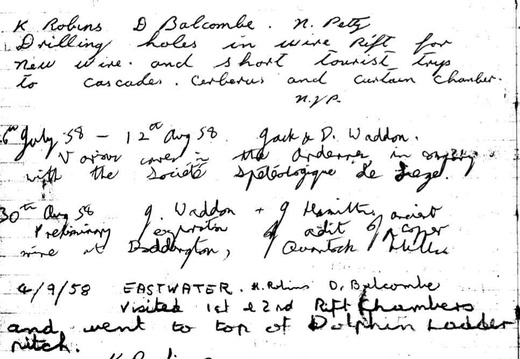 K Robins D Balcombe. N. Petty
Drilling holes in wire Rift for
new wire. and short tourist trip
to cascades. Cerberus and curtain chamber.
N.J.P.
6th July 58 – 12th Aug 58. Jack & D. Waddon.
Various caves in the Ardennes in
with the Société Spéléologique de
30th Aug 58 J. Waddon + J Hamilton, ancient
Preliminary of adit of copper
mine at Doddington, Quantock Hills
4/9/58 EASTWATER. K. Robins D. Balcombe
Visited 1st & 2nd Rift Chambers
and went to top of Dolphin Ladder
pitch.